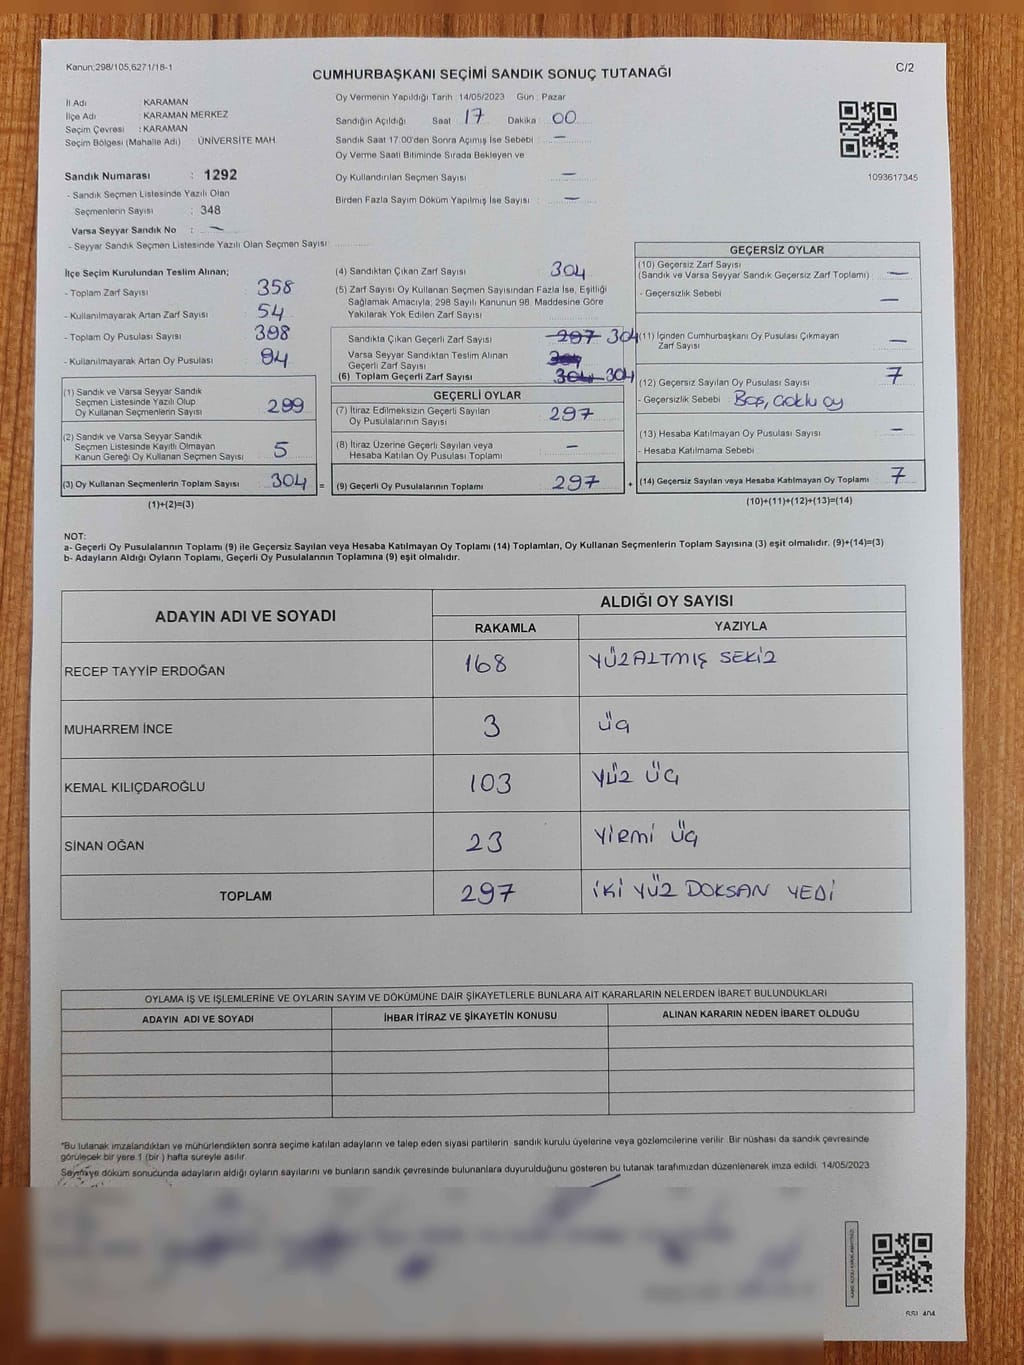 Kanun:298/105,6271/18-1
CUMHURBAŞKANI SEÇİMİ SANDIK SONUÇ TUTANAĞI
C/2
İl Adı : KARAMAN
İlçe Adı : KARAMAN MERKEZ
Seçim Çevresi : KARAMAN
Seçim Bölgesi (Mahalle Adı) ÜNİVERSİTE MAH
Sandık Numarası : 1292
- Sandık Seçmen Listesinde Yazılı Olan
Seçmenlerin Sayısı : 348
Varsa Seyyar Sandık No : —
- Seyyar Sandık Seçmen Listesinde Yazılı Olan Seçmen Sayısı
Oy Vermenin Yapıldığı Tarih : 14/05/2023 Gün : Pazar
Sandığın Açıldığı Saat 17 Dakika 00
Sandık Saat 17.00'den Sonra Açımış İse Sebebi : —
Oy Verme Saati Bitiminde Sırada Bekleyen ve
Oy Kullandırılan Seçmen Sayısı —
Birden Fazla Sayım Döküm Yapılmış İse Sayısı : —
1093617345
İlçe Seçim Kurulundan Teslim Alınan;
- Toplam Zarf Sayısı 358
- Kullanılmayarak Artan Zarf Sayısı 54
- Toplam Oy Pusulası Sayısı 398
- Kullanılmayarak Artan Oy Pusulası 94
(1) Sandık ve Varsa Seyyar Sandık
Seçmen Listesinde Yazılı Olup
Oy Kullanan Seçmenlerin Sayısı 299
(2) Sandık ve Varsa Seyyar Sandık
Seçmen Listesinde Kayıtlı Olmayan
Kanun Gereği Oy Kullanan Seçmen Sayısı 5
(3) Oy Kullanan Seçmenlerin Toplam Sayısı 304 =
(1)+(2)=(3)
(4) Sandıktan Çıkan Zarf Sayısı 304
(5) Zarf Sayısı Oy Kullanan Seçmen Sayısından Fazla İse, Eşitliği
Sağlamak Amacıyla; 298 Sayılı Kanunun 98. Maddesine Göre
Yakılarak Yok Edilen Zarf Sayısı
Sandıkta Çıkan Geçerli Zarf Sayısı 297 304
Varsa Seyyar Sandıktan Teslim Alınan
Geçerli Zarf Sayısı
(6) Toplam Geçerli Zarf Sayısı 304 304
GEÇERLİ OYLAR
(7) İtiraz Edilmeksizin Geçerli Sayılan
Oy Pusulalarının Sayısı 297
(8) İtiraz Üzerine Geçerli Sayılan veya
Hesaba Katılan Oy Pusulası Toplamı —
(9) Geçerli Oy Pusulalarının Toplamı 297 +
GEÇERSİZ OYLAR
(10) Geçersiz Zarf Sayısı
(Sandık ve Varsa Seyyar Sandık Geçersiz Zarf Toplamı) —
- Geçersizlik Sebebi —
(11) İçinden Cumhurbaşkanı Oy Pusulası Çıkmayan
Zarf Sayısı —
(12) Geçersiz Sayılan Oy Pusulası Sayısı 7
- Geçersizlik Sebebi Boş, Çoklu oy
(13) Hesaba Katılmayan Oy Pusulası Sayısı —
- Hesaba Katılmama Sebebi
(14) Geçersiz Sayılan veya Hesaba Katılmayan Oy Toplamı 7
(10)+(11)+(12)+(13)=(14)
NOT:
a- Geçerli Oy Pusulalarının Toplamı (9) ile Geçersiz Sayılan veya Hesaba Katılmayan Oy Toplamı (14) Toplamları, Oy Kullanan Seçmenlerin Toplam Sayısına (3) eşit olmalıdır. (9)+(14)=(3)
b- Adayların Aldığı Oyların Toplamı, Geçerli Oy Pusulalarının Toplamına (9) eşit olmalıdır.
ADAYIN ADI VE SOYADI ALDIĞI OY SAYISI
RAKAMLA YAZIYLA
RECEP TAYYİP ERDOĞAN 168 YÜZALTMIŞ SEKİZ
MUHARREM İNCE 3 ÜÇ
KEMAL KILIÇDAROĞLU 103 YÜZ ÜÇ
SİNAN OĞAN 23 YİRMİ ÜÇ
TOPLAM 297 İKİ YÜZ DOKSAN YEDİ
OYLAMA İŞ VE İŞLEMLERİNE VE OYLARIN SAYIM VE DÖKÜMÜNE DAİR ŞİKAYETLERLE BUNLARA AİT KARARLARIN NELERDEN İBARET BULUNDUKLARI
ADAYIN ADI VE SOYADI İHBAR İTİRAZ VE ŞİKAYETİN KONUSU ALINAN KARARIN NEDEN İBARET OLDUĞU
*Bu tutanak imzalandıktan ve mühürlendikten sonra seçime katılan adayların ve talep eden siyasi partilerin sandık kurulu üyelerine veya gözlemcilerine verilir. Bir nüshası da sandık çevresinde
görülecek bir yere 1 (bir ) hafta süreyle asılır.
Sayım ve döküm sonucunda adayların aldığı oyların sayılarını ve bunların sandık çevresinde bulunanlara duyurulduğunu gösteren bu tutanak tarafımızdan düzenlenerek imza edildi. 14/05/2023